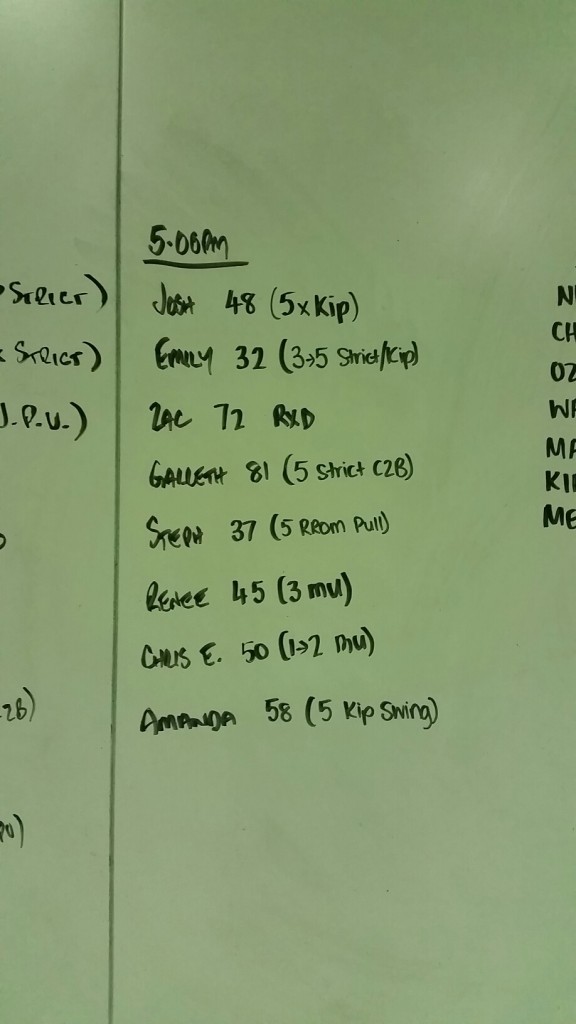 5.00PM
Strict)
JOSH 48 (5xKip)
Strict)
EMILY 32 (3→5 Strict/Kip)
J.P.U.)
ZAC 72 RXD
GARRETH 81 (5 Strict C2B)
STEPH 37 (5 RROM Pull)
RENEE 45 (3 mu)
CHRIS E. 50 (1→2 mu)
AMANDA 58 (5 Kip Swing)
2B)
N
CH
OZ
WA
MA
KI
ME